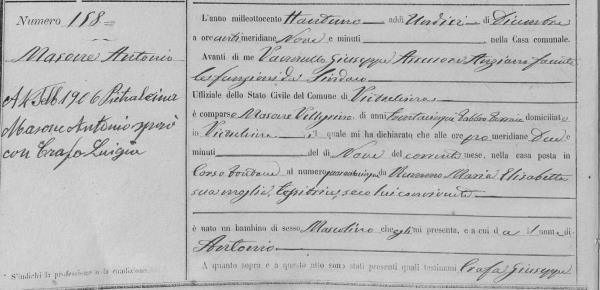 Numero 188
Masone Antonio
A 14 Feb 1906 Pietrelcina
Masone Antonio sposò
con Crafa Luigia
* S'indichi la professione o la condizione.
L'anno milleottocento Ttantuno addì Undici di Dicembre
a ore antimeridiane Nove e minuti nella Casa comunale.
Avanti di me Giuseppe Assessore Anziano facente
le funzioni da Sindaco
Uffiziale dello Stato Civile del Comune di
è comparso Masone Pellegrino di anni domiciliato
in il quale mi ha dichiarato che alle ore pomeridiane Due e
minuti del dì Nove del corrente mese, nella casa posta in
Corso al numero da Maria Elisabetta
sua moglie seco lui convivente
è nato un bambino di sesso Mascolino che egli mi presenta, e a cui dà il nome di
Antonio
A quanto sopra e a questo atto sono stati presenti quali testimoni Crafa Giuseppe